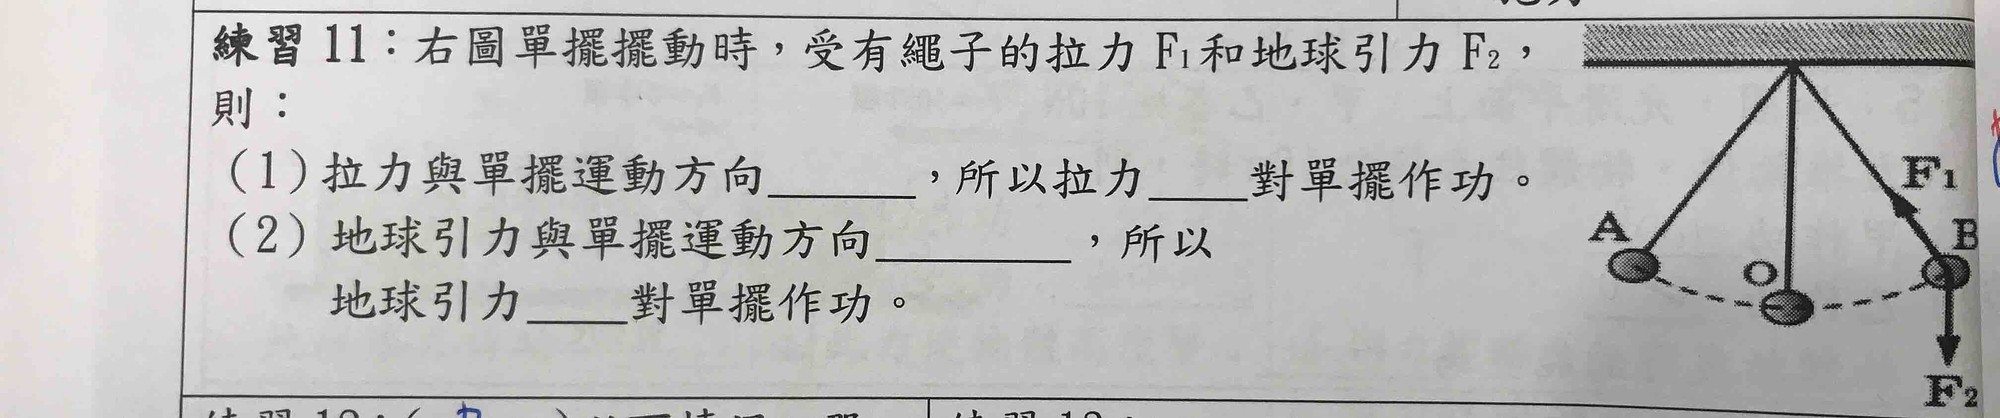 練習 11：右圖單擺擺動時，受有繩子的拉力 F₁和地球引力 F₂，
則：
(1)拉力與單擺運動方向______，所以拉力____對單擺作功。
(2) 地球引力與單擺運動方向________，所以
地球引力____對單擺作功。
F₁
A
B
O
F₂